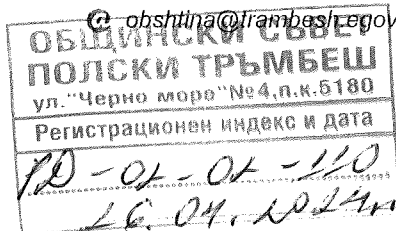 @ obshtina@trambesh.egov
ОБЩИНСКИ СЪВЕТ
ПОЛСКИ ТРЪМБЕШ
ул."Черно море"№4,п.к.5180
Регистрационен индекс и дата
РД-02-02-110
26.04.2024г